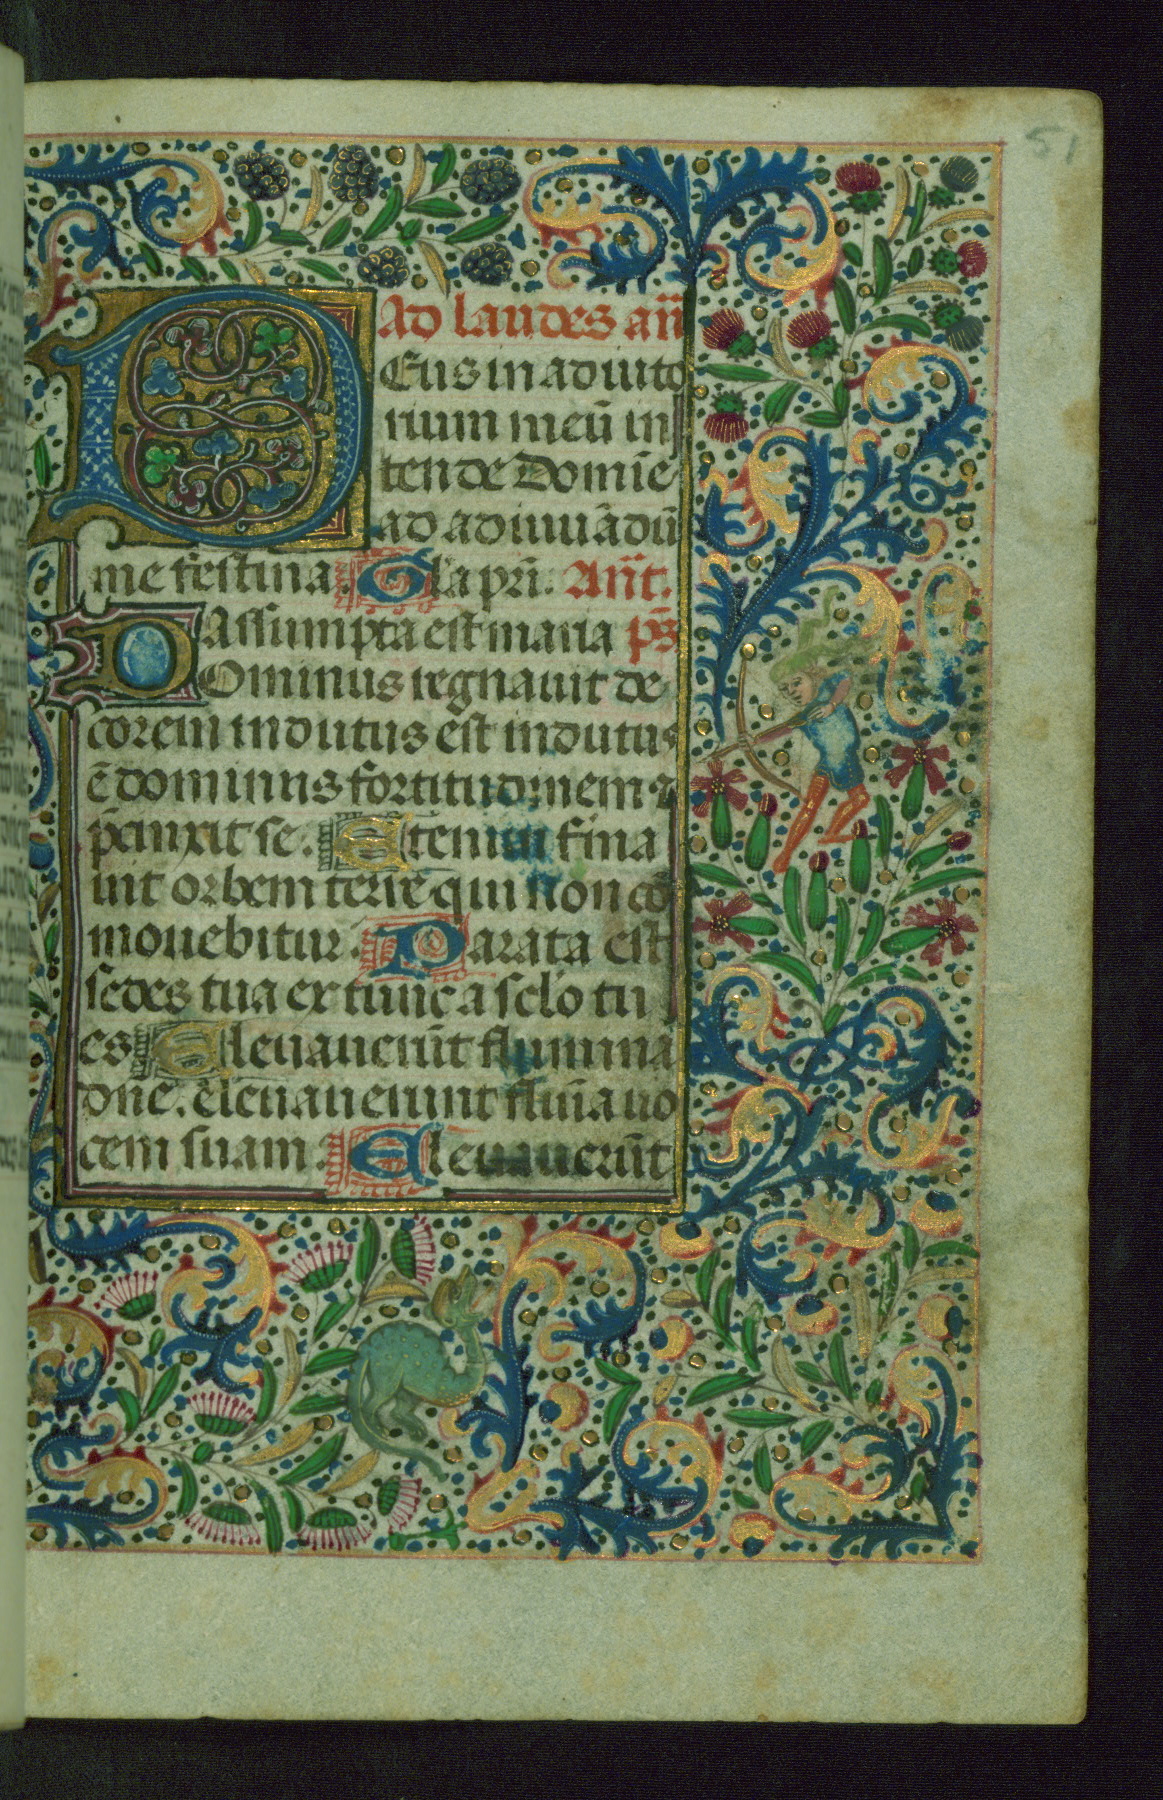 51
Ad laudes an̄
Deus in adiuto
rium meū in
tende Domīe
ad adiuuādū
me festina. Gl'a pri. Ant.
Assumpta est maria ps̄
Dominus regnauit de
corem indutus est indutus
ē dominus fortitudinem ⁊
p̄cinxit se. Etenim firma
uit orbem terre qui non cō
mouebitur. Parata est
sedes tua ex tunc a sclo tu
es Eleuauerūt flumina
dn̄e. eleuauerunt flūia uo
cem suam. Eleuauerūt